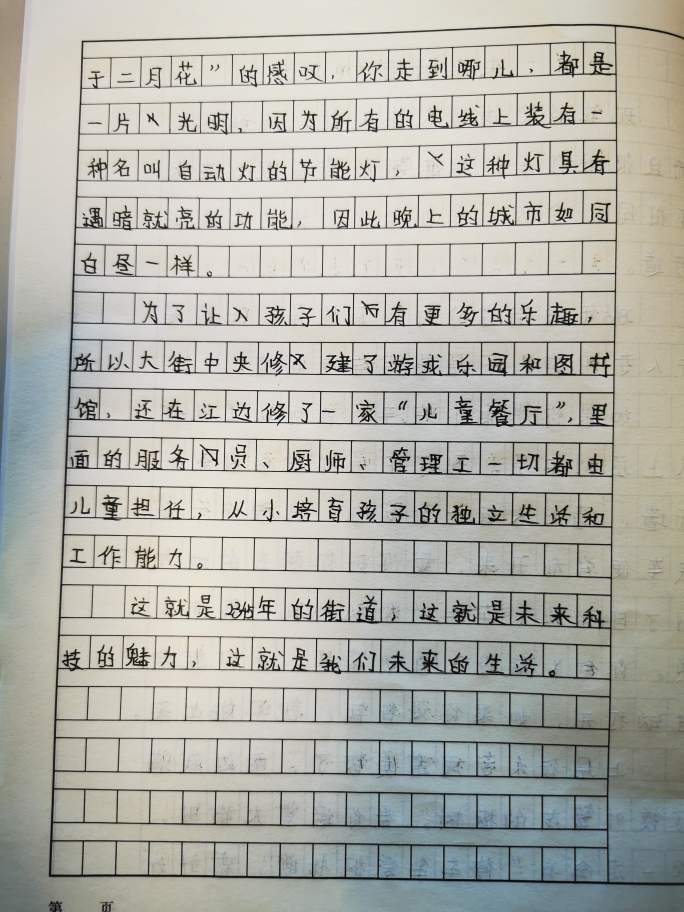 于二月花”的感叹，你走到哪儿，都是
一片光明，因为所有的电线上装有一
种名叫自动灯的节能灯，这种灯具有
遇暗就亮的功能，因此晚上的城市如同
白昼一样。
为了让孩子们有更多的乐趣，
所以大街中央修建了游戏乐园和图书
馆，还在江边修了一家“儿童餐厅”，里
面的服务员、厨师、管理工一切都由
儿童担任，从小培育孩子的独立生活和
工作能力。
这就是2345年的街道，这就是未来科
技的魅力，这就是我们未来的生活。
第 页